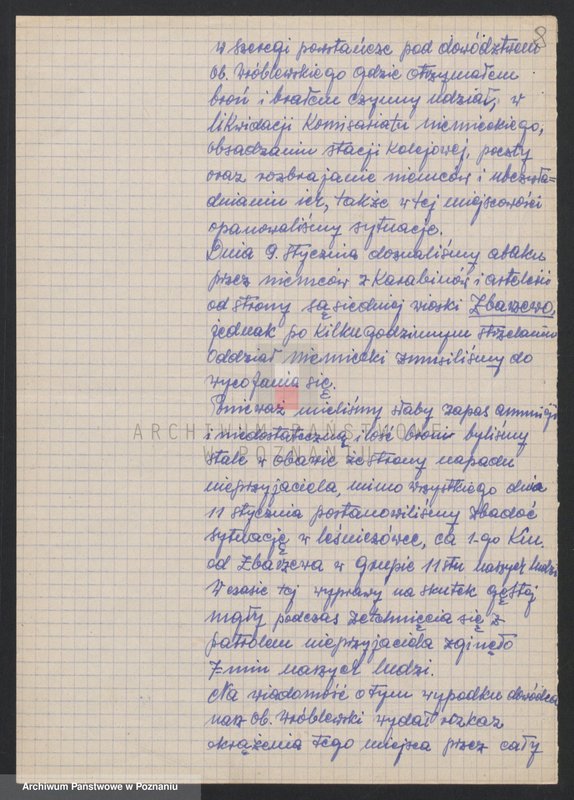 8
w szeregi powstańcze pod dowództwem
ob. Wróblewskiego gdzie otrzymałem
broń i brałem czynny udział, w
likwidacji Komisariatu niemieckiego,
obsadzaniu stacji kolejowej, poczty
oraz rozbrajanie niemców i ubezwła=
dnianiu ich, także w tej miejscowości
opanowaliśmy sytuację.
Dnia 9. stycznia doznaliśmy ataku
przez niemców z Karabinów i artelerii
od strony sąsiedniej wioski Zbąszewo,
jednak po kilkugodzinnym strzelaniu
Oddział niemiecki zmusiliśmy do
wycofania się.
Ponieważ mieliśmy słaby zapas amunicji
i niedostateczną ilość broni byliśmy
stale w obawie ze strony napadu
nieprzyjaciela, mimo wszystkiego dnia
11 stycznia postanowiliśmy zbadać
sytuację w leśniczówce, ca 1-go Km.
od Zbąszewa w grupie 11stu naszych ludzi
W czasie tej wyprawy na skutek gęstej
mgły podczas zetknięcia się z
patrolem nieprzyjaciela zginęło
7-miu naszych ludzi.
Na wiadomość o tym wypadku dowódca
nasz ob. Wróblewski wydał rozkaz
okrążenia tego miejsca przez cały
ARCHIWUM PAŃSTWOWE
W POZNANIU
Archiwum Państwowe w Poznaniu